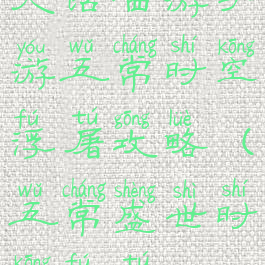 yóu wǔ cháng shí kōng
游五常时空
fú tú gōng lüè
浮屠攻略（
wǔ cháng shèng shì shí
五常盛世时
kōng fú tú